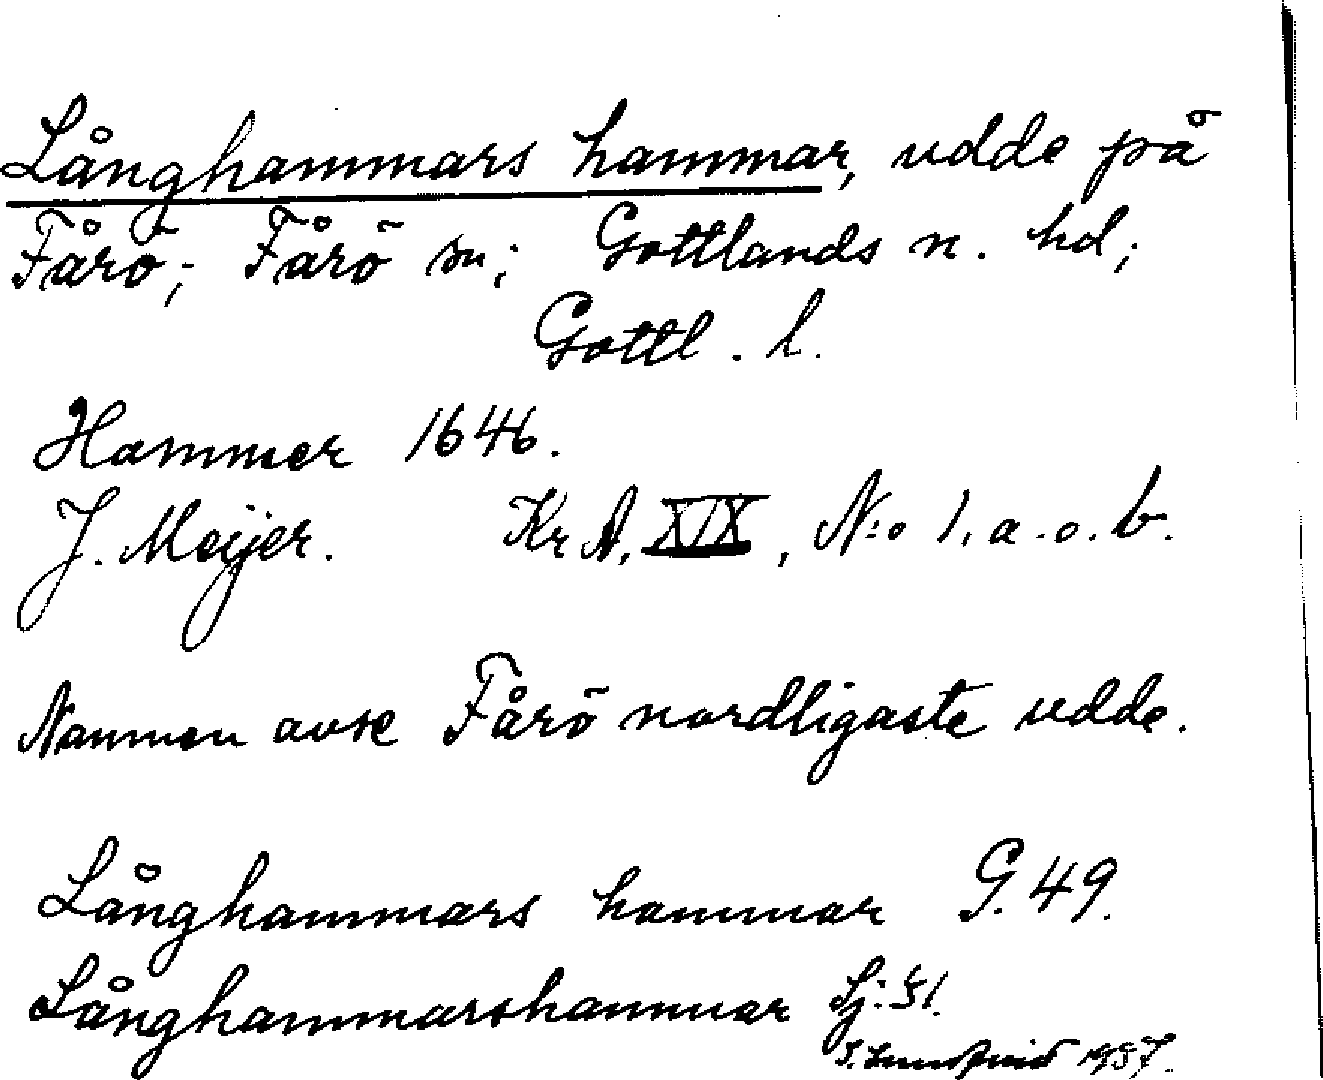 Långhammars hammar, udde på
Fårö; Fårö sn; Gottlands n. hd;
Gottl. l.
Hammer 1646.
J. Meijer. Kr A, XIX, N:o 1, a.o.b.
Namnen avse Fårö nordligaste udde.
Långhammars hammar G. 49.
Långhammarshammar Sj: 51.
1937.